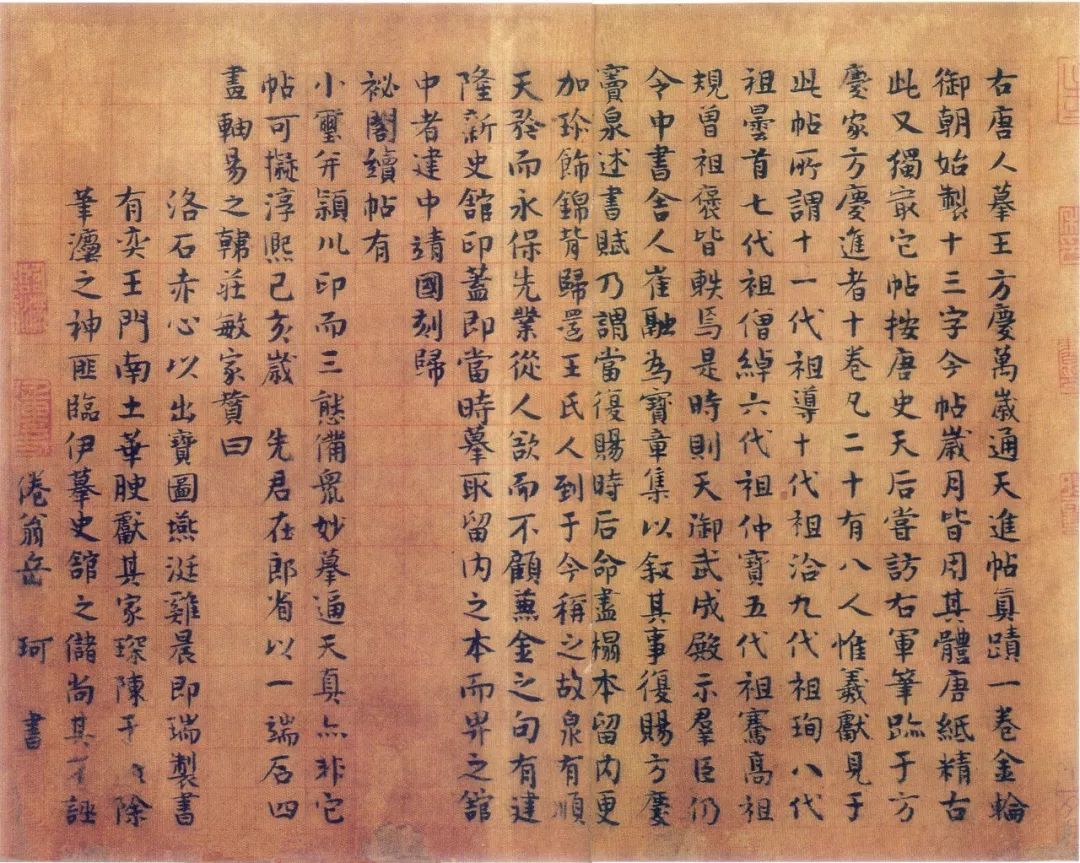 右唐人摹王方慶萬歲通天進帖真蹟一卷金輪
御朝始製十三字今帖歲月皆用其體唐紙精古
此又獨冣它帖按唐史天后嘗訪右軍筆跡于方
慶家方慶進者十卷凡二十有八人惟羲獻見于
此帖所謂十一代祖導十代祖洽九代祖珣八代
祖曇首七代祖僧綽六代祖仲寶五代祖騫高祖
規曾祖褒皆軼焉是時則天御武成殿示羣臣仍
令中書舍人崔融為寶章集以叙其事復賜方慶
竇臮述書賦乃謂當復賜時后命盡榻本留内更
加珍飾錦背歸還王氏人到于今稱之故臮有順
天矜而永保先業從人欲而不顧兼金之句有建
隆新史舘印蓋即當時摹取留内之本而畀之舘
中者建中靖國刻歸
祕閣續帖有
小璽并潁川印而三態備衆妙摹逼天真亦非它
帖可擬淳熙己亥歲 先君在郎省以一端石四
畫軸易之韓莊敏家贊曰
洛石赤心以出寶圖燕涎雞晨即瑞製書
有奕王門南土華腴獻其家琛陳于 除
筆瀍之神匪臨伊摹史舘之儲尚其不誣
倦翁岳 珂 書